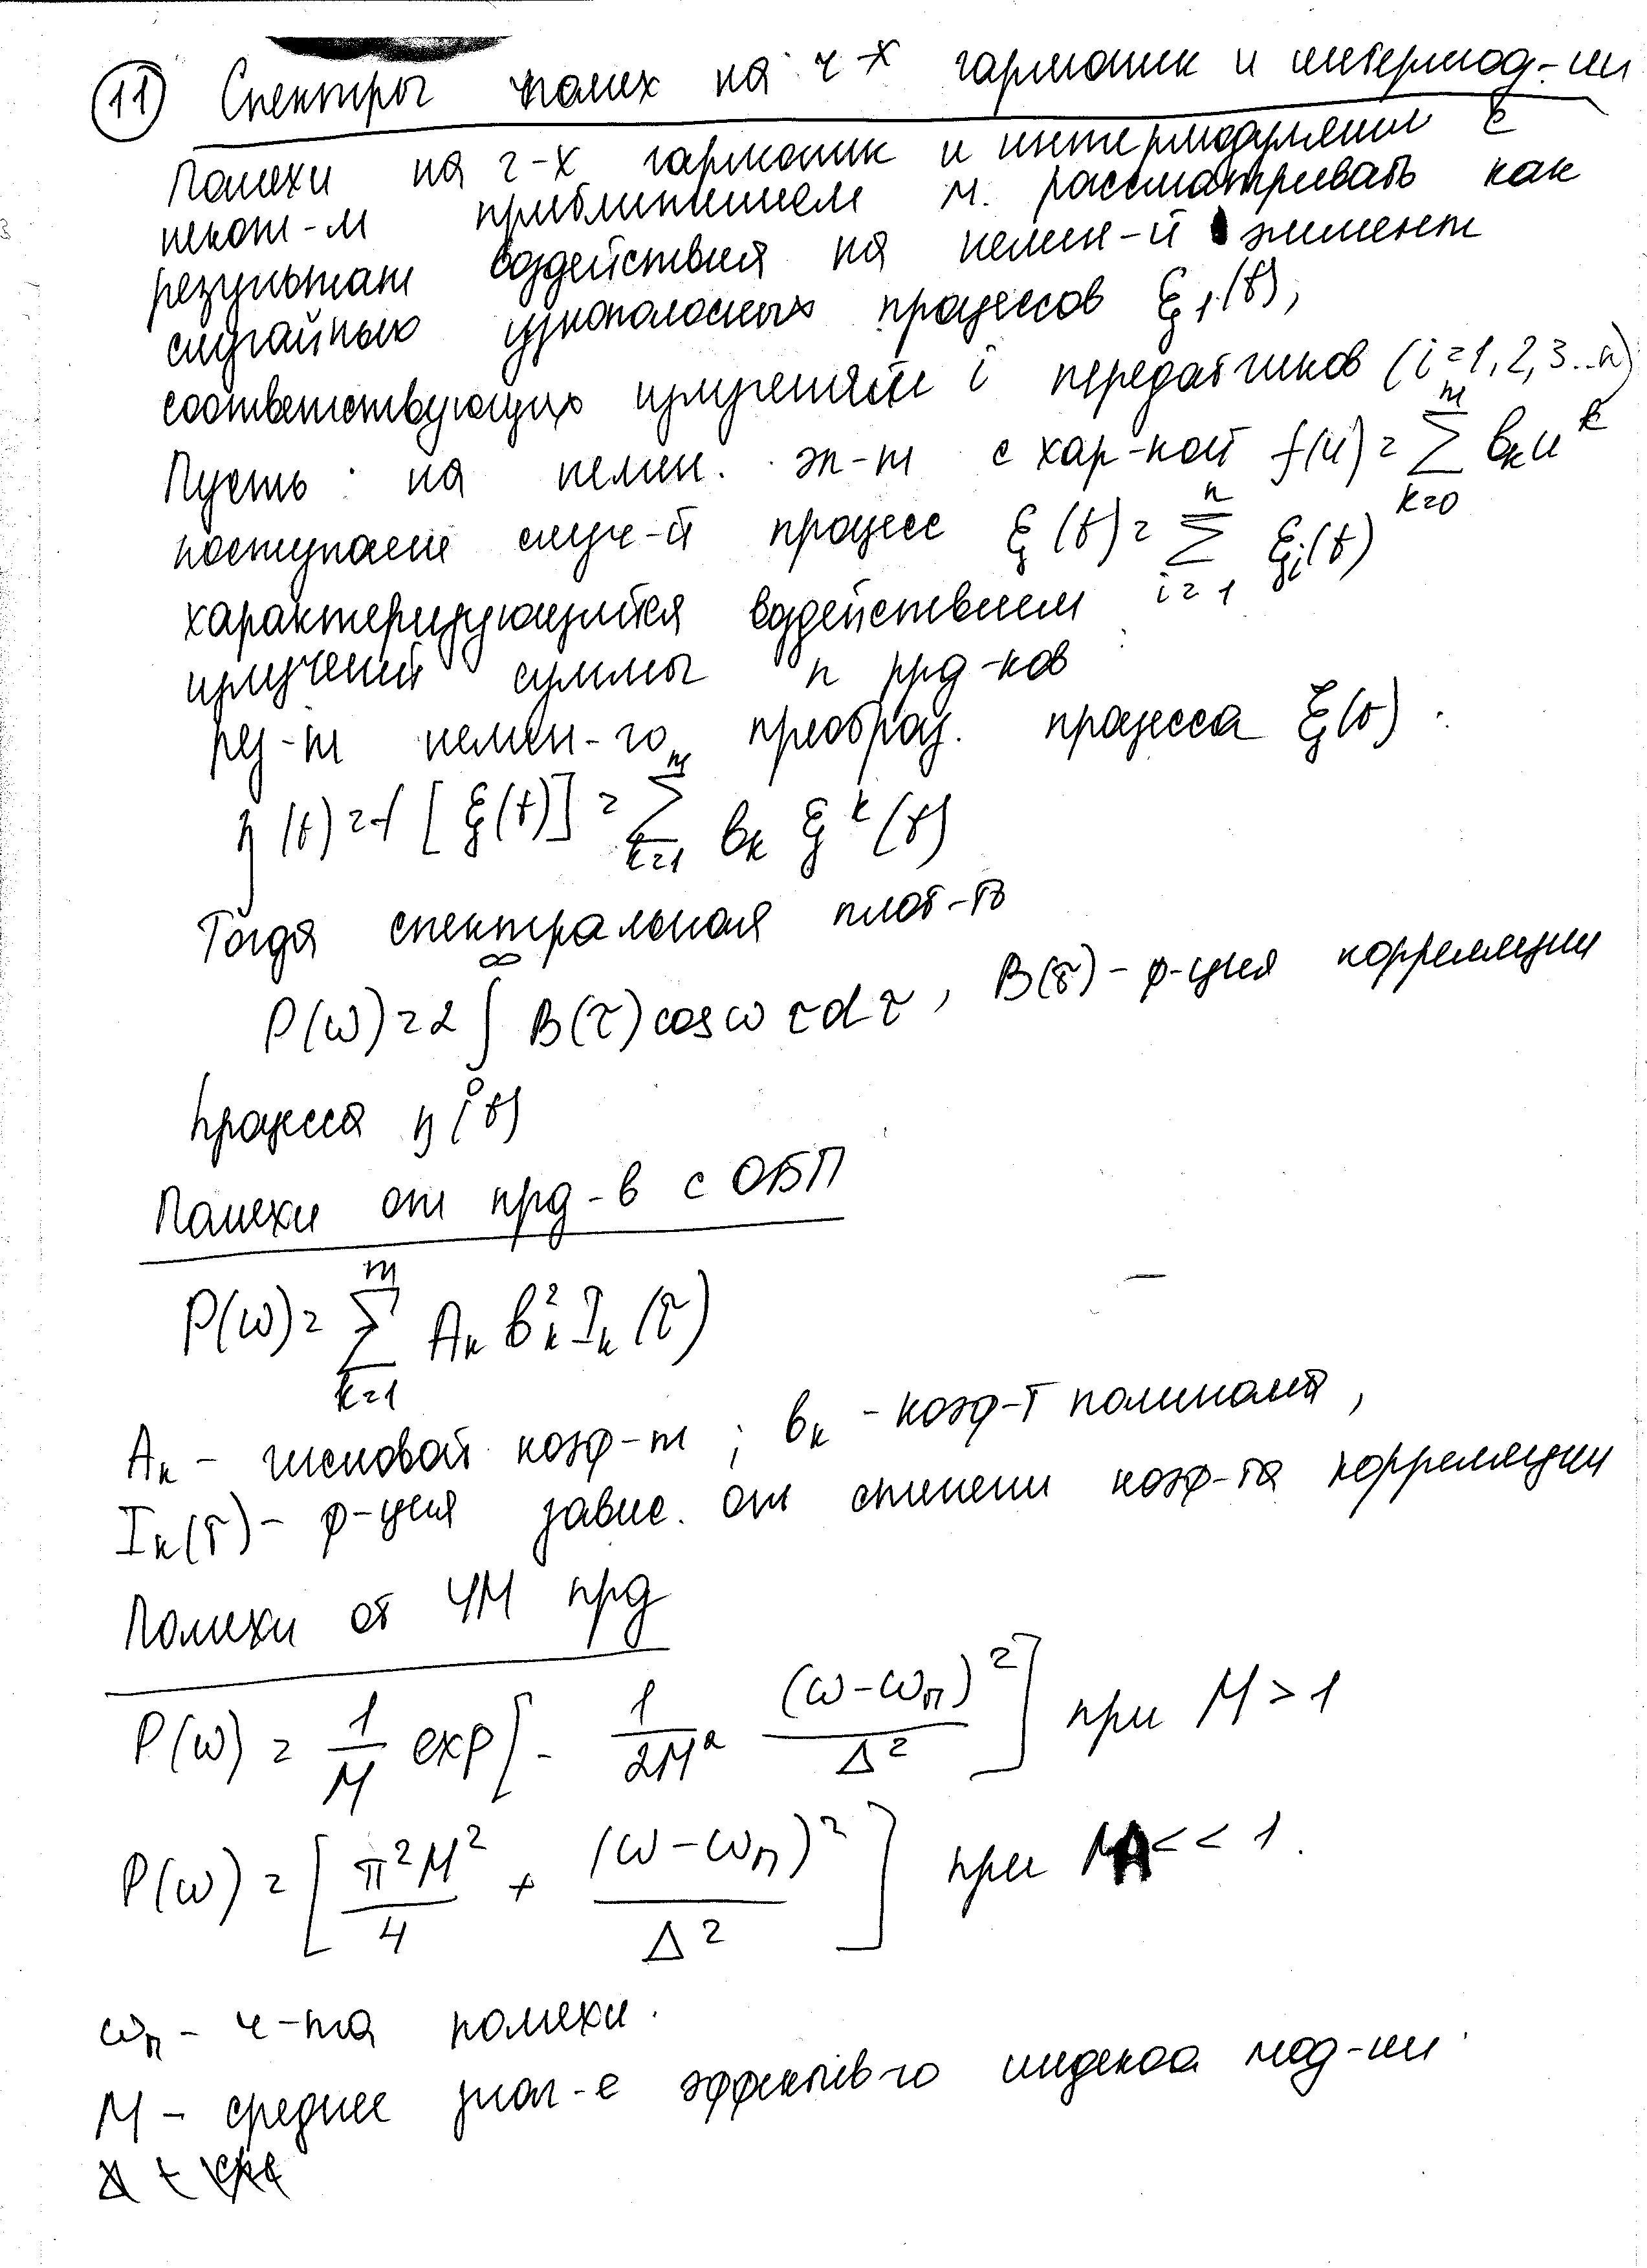 11 Спектры помех на ч-х гармоник и интермод-ии
Помехи на ч-х гармоник и интермодуляции с
некот-м приближением м. рассматривать как
результат воздействия на нелин-й элемент
случайных узкополосных процессов ξ₁(t),
соответствующих излучениям i передатчиков (i=1,2,3...n)
Пусть на нелин. эл-т с хар-кой f(u) = Σ_{k=0}^{m} b_k u^k
поступает случ-й процесс ξ(t) = Σ_{i=1}^{n} ξ_i(t)
характеризующийся воздействием
излучений суммы n прд-ков
рез-т нелин-го преобраз. процесса ξ(t).
η(t) = f[ξ(t)] = Σ_{k=1}^{m} b_k ξ^k(t)
Тогда спектральная плот-ть
P(ω) = 2 ∫_0^∞ B(τ) cos ω τ d τ, B(τ) - ф-ция корреляции
процесса η(t)
Помехи от прд-в с ОБП
P(ω) = Σ_{k=1}^{m} A_k b_k² I_k(τ)
A_k - числовой коэф-т; b_k - коэф-т полинома,
I_k(τ) - ф-ция завис. от степени коэф-та корреляции
Помехи от ЧМ прд
P(ω) = 1/M exp[- 1/2M² (ω-ω_п)²/Δ²] при M > 1
P(ω) = [π²M²/4 + (ω-ω_п)²/Δ²] при M << 1.
ω_п - ч-та помехи.
M - среднее знач-е эффектив-го индекса мод-ии